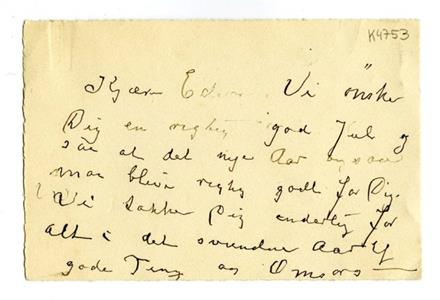 K4753
Kjære Edvard. Vi ønsker
Dig en rigtig god Jul og
saa at det nye Aar ogsaa
maa blive rigtig godt for Dig.
Vi takker Dig inderlig for
alt i det svundne Aar af
gode Ting og Omsorg